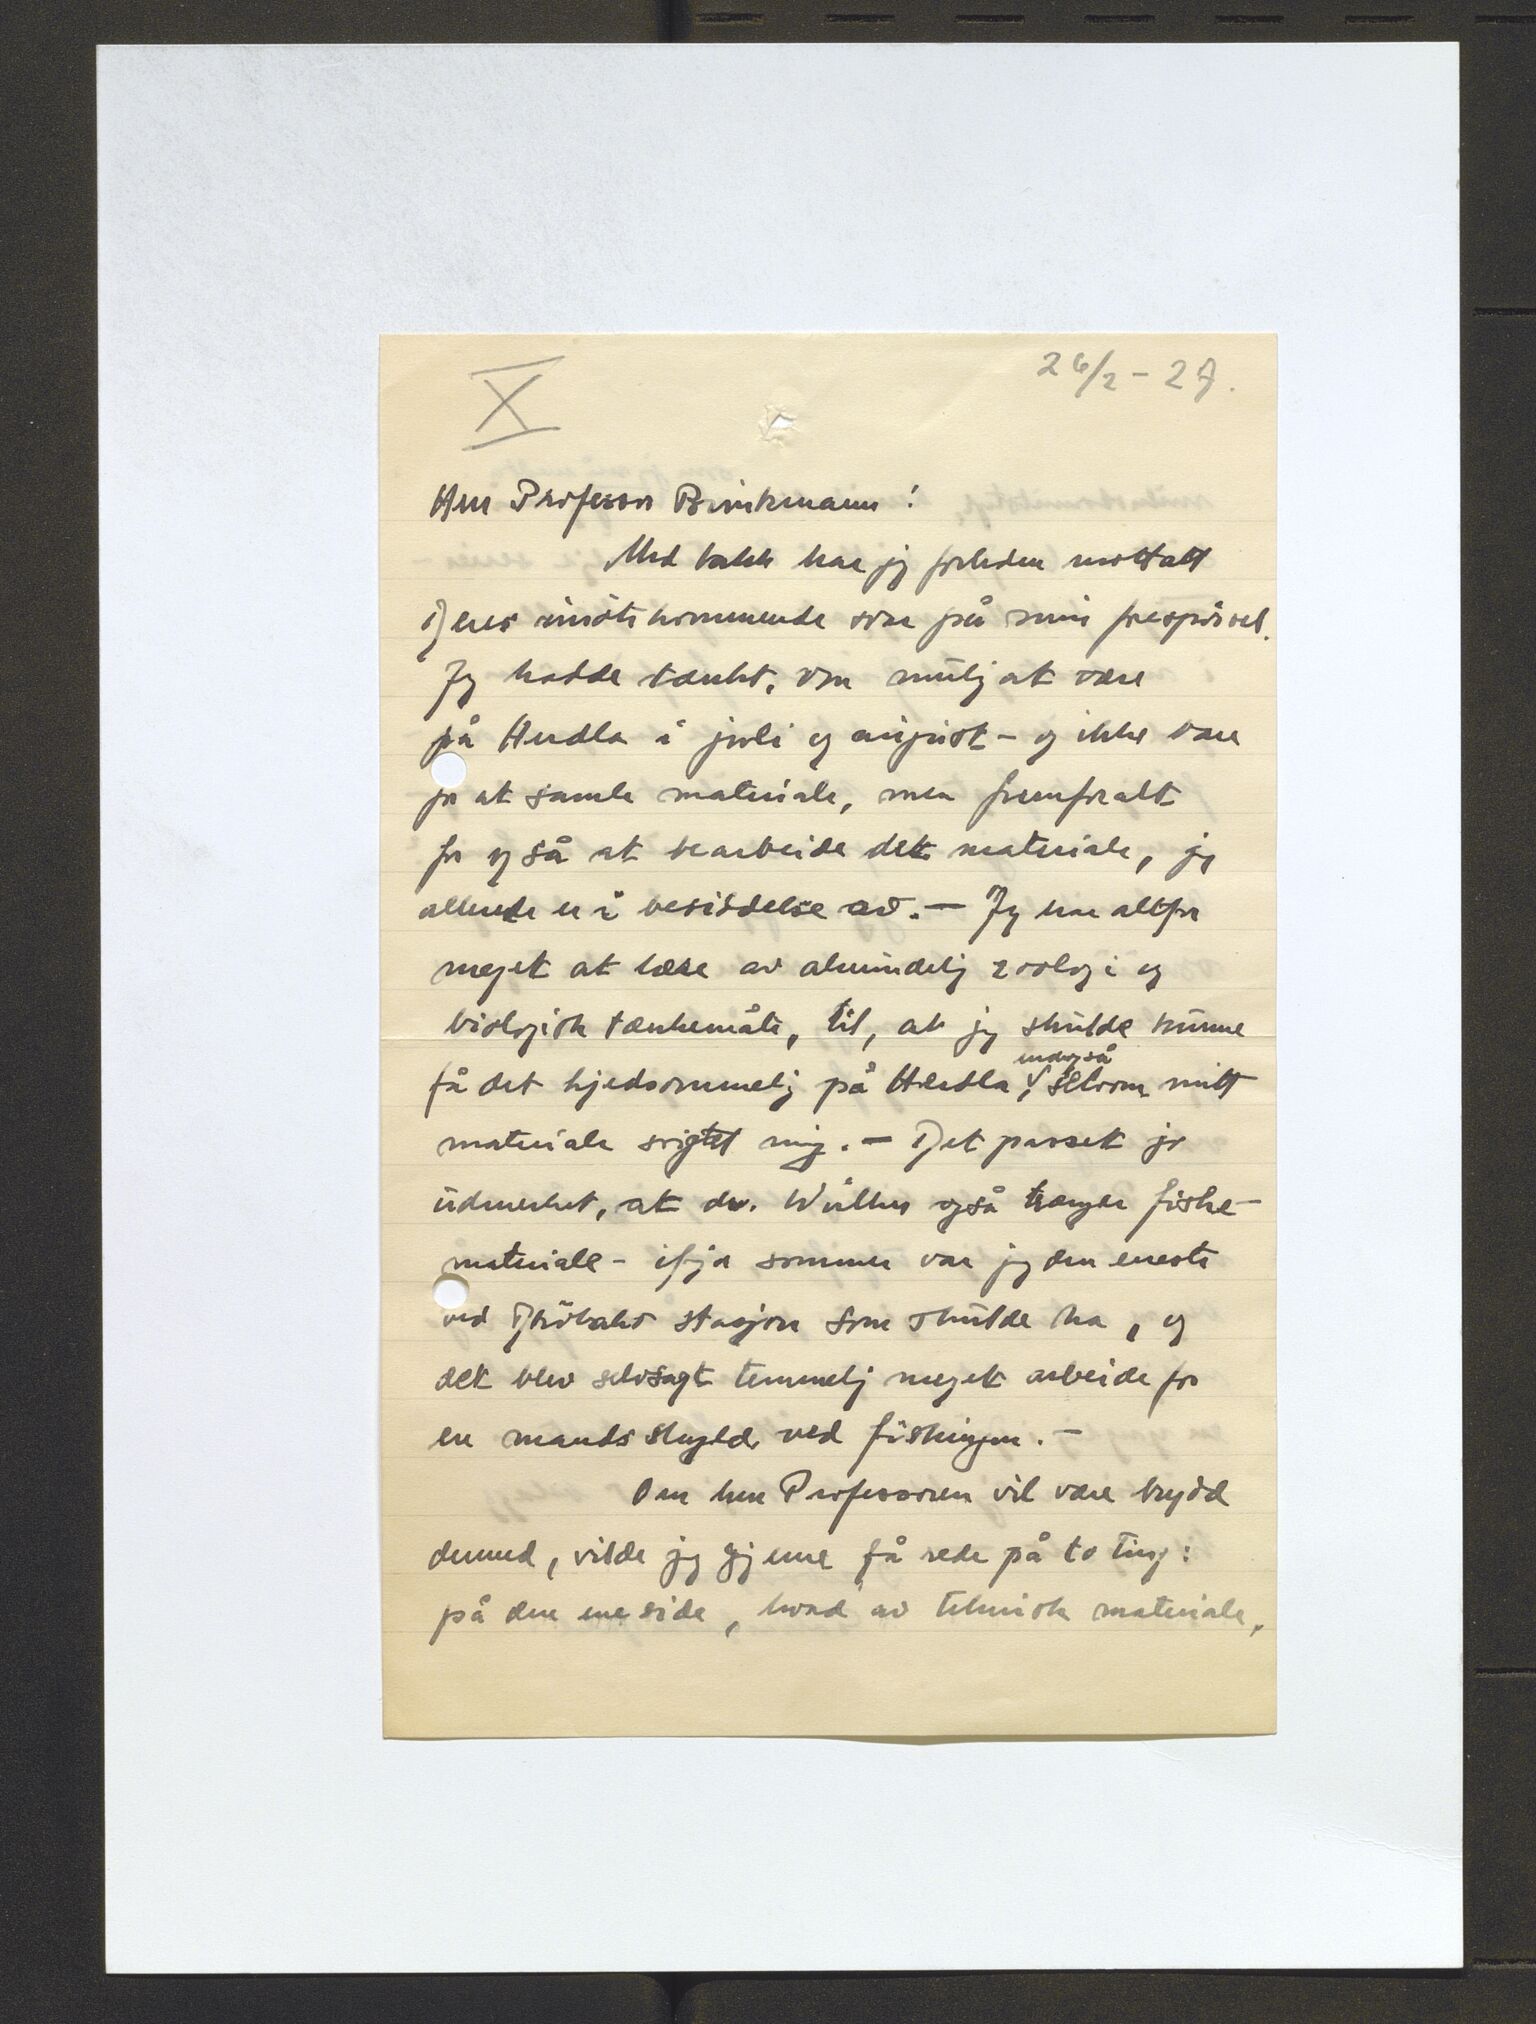 X
26/2 - 27.
Herr Professor Brinkmann!
Med takk har jeg forleden mottatt
Deres imøtekommende svar på min forespørsel.
Jeg hadde tænkt, om mulig at være
på Herdla i juli og august - og ikke bare
for at samle materiale, men fremforalt
for også at bearbeide det materiale, jeg
allerede er i besiddelse av. - Jeg har altfor
meget at læse av almindelig zoologi og
biologisk tænkemåte, til, at jeg skulde kunne
få det kjedsommelig på Herdla, endogså selvom mitt
materiale svigtet mig. - Det passet jo
udmerket, at dr. Wülker også trænger fiske-
materiale - ifjor sommer var jeg den eneste
ved Drøbaks stasjon som skulde ha, og
det blev selvsagt temmelig meget arbeide for
en mands skyld ved fiskingen. -
Om herr Professoren vil være brydd
dermed, vilde jeg gjerne få rede på to ting:
på den ene side, hvad av teknisk materiale,